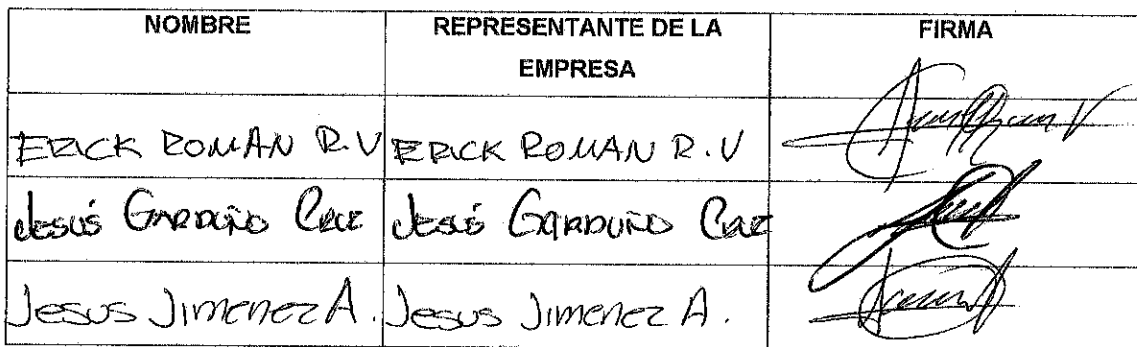 NOMBRE
REPRESENTANTE DE LA
EMPRESA
FIRMA
ERICK ROMAN R.V
ERICK ROMAN R.V
Jesús GARDUÑO CRUZ
JESÚS GARDUÑO CRUZ
Jesus Jimenez A.
Jesus Jimenez A.